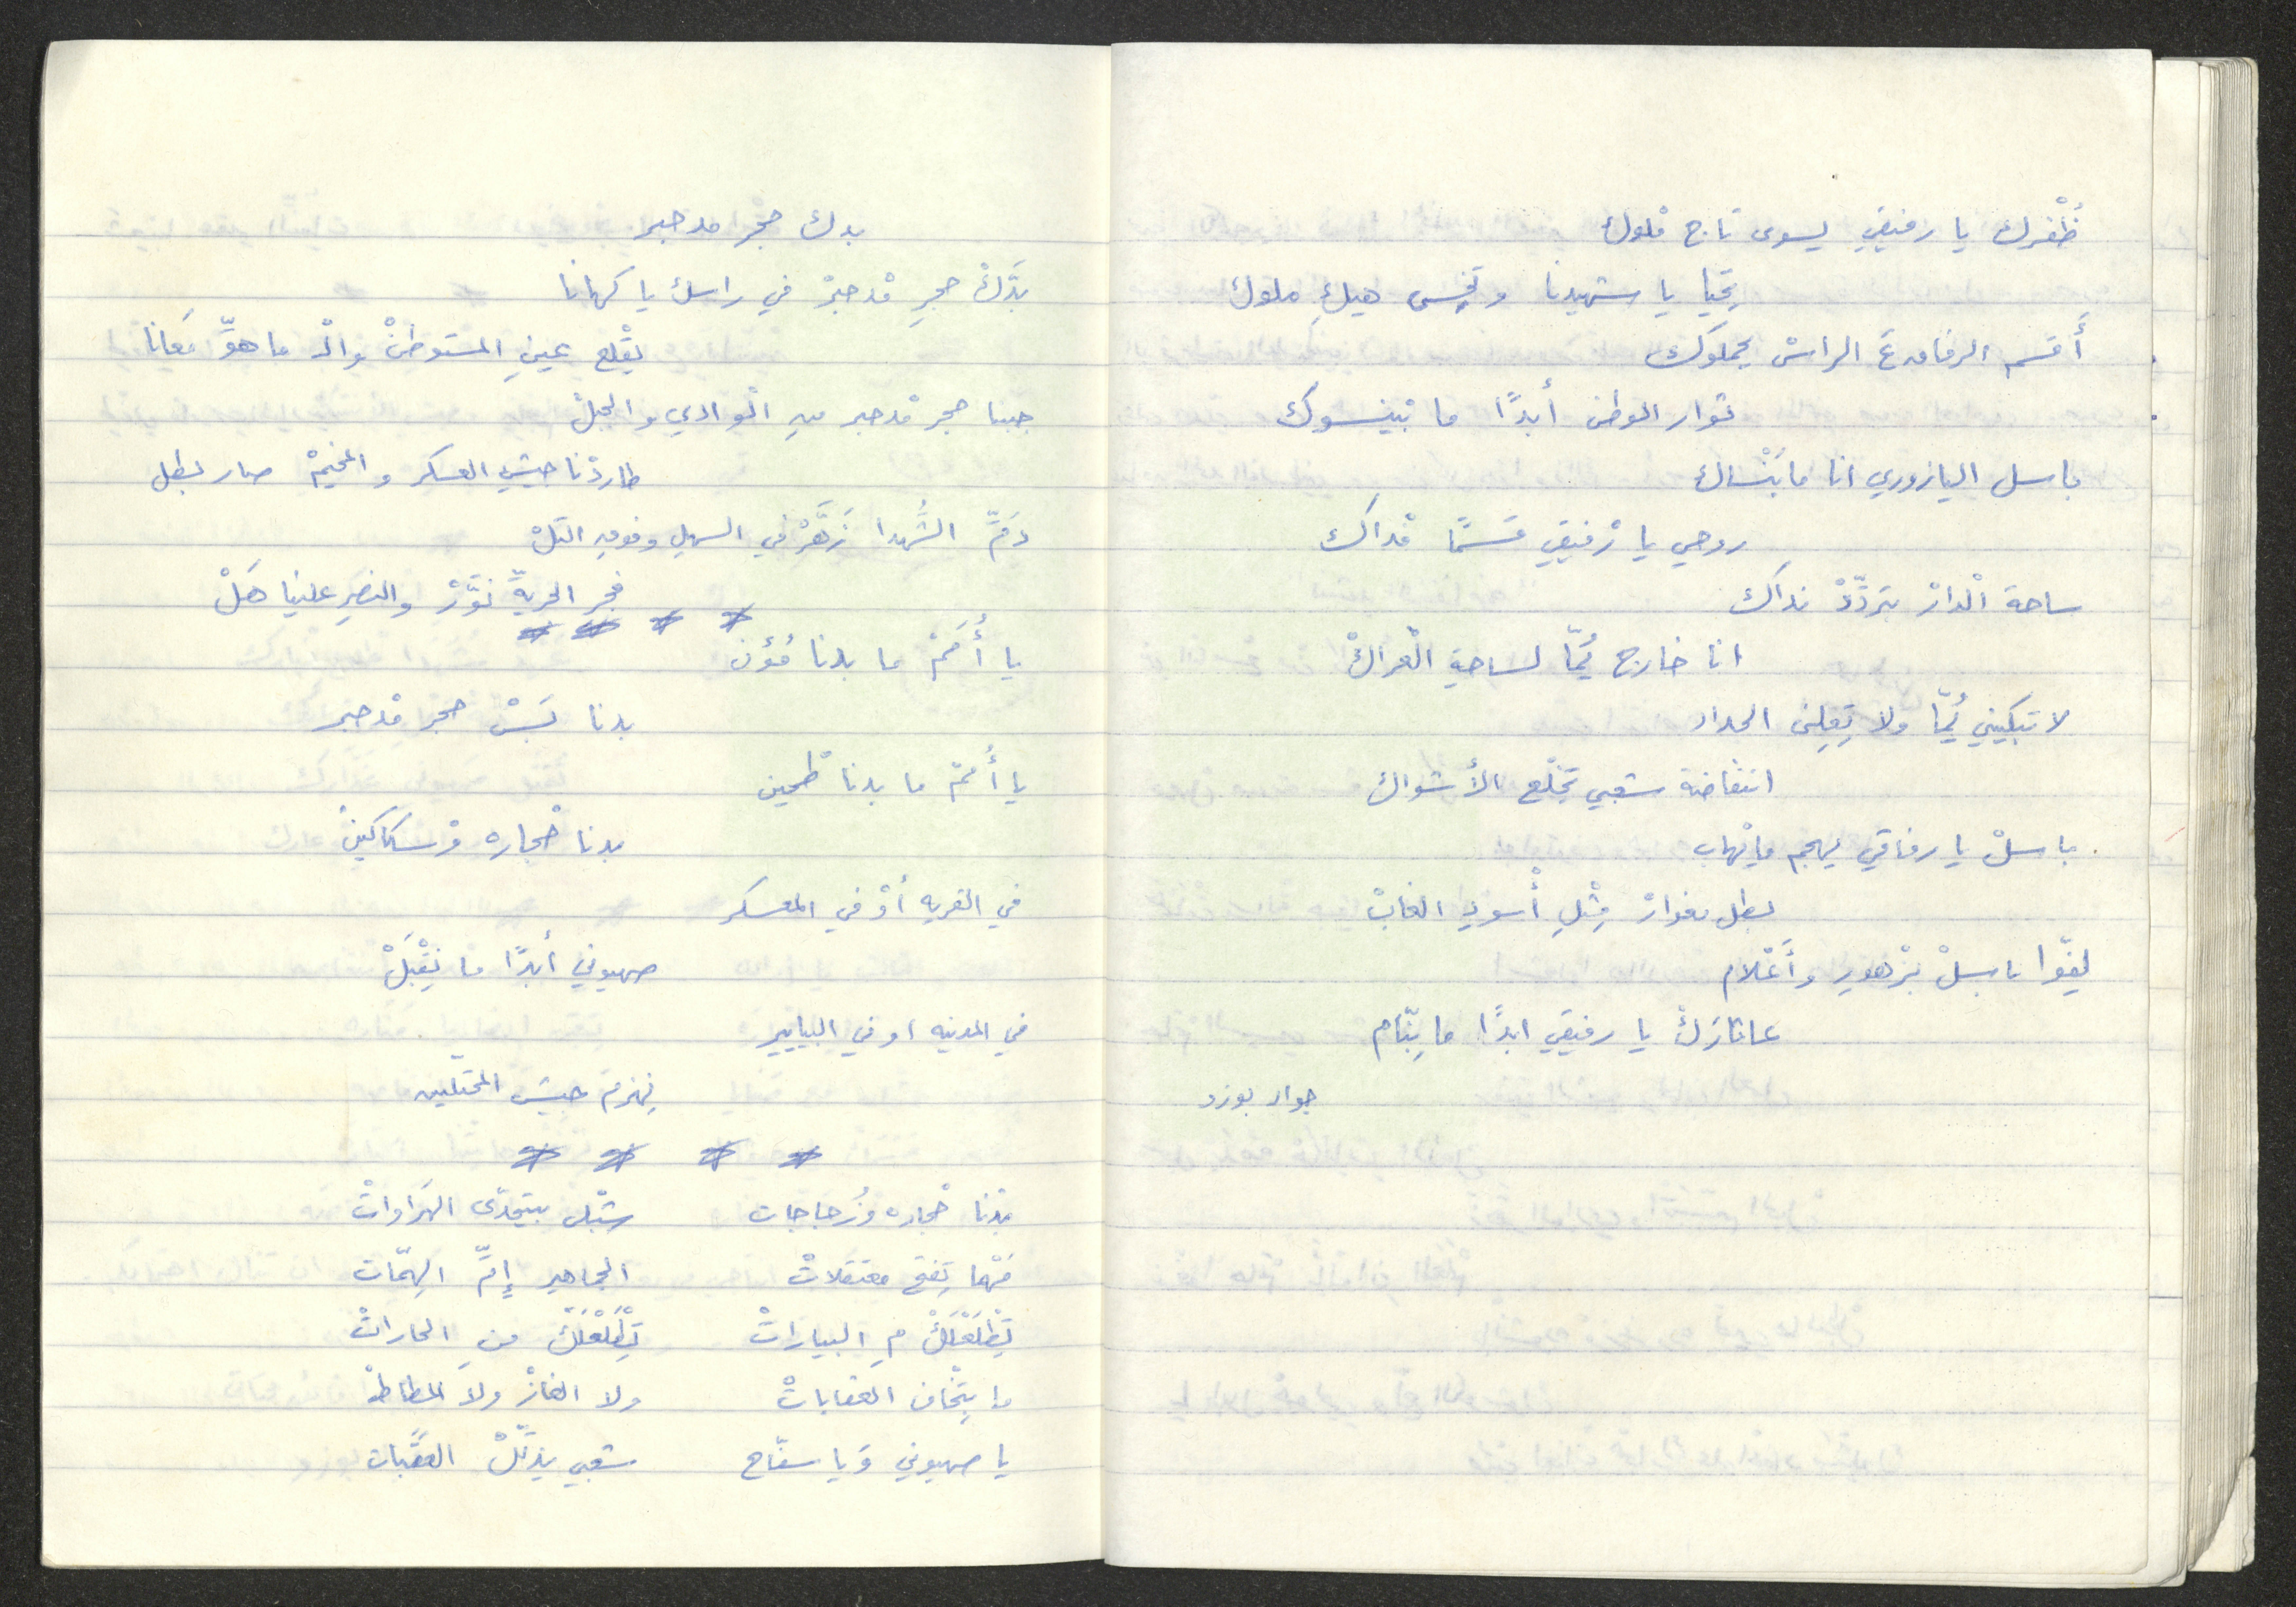 ظْفْرك يا رفيقي يسوى تاج ملوك
تِحيا يا شهيدنا وتخسى هيكِ ملوك
أَقسم الرفاق عَ الراسْ يحملوك
ثوار الوطن أبدًا ما بينسوك
باسل اليازوري انا ما بَنْساك
روحي يا رْفيقي قسمًا فْداك
ساحة الْدارْ بتردّدْ نداك
انا خارج يُمّا لساحةِ الْعراكْ
لا تبكيني يُمّا ولا تِعِلني الحداد
انتفاضة شعبي تخلّع الأشواك
باسلْ يا رفاقي يهجم مايْهاب
بطل مغوارْ مِثْلِ أْسودِ الغابْ
لِفّوا باسلْ بزْهورِ وأَعْلام
عاثارَكْ يا رفيقي ابدًا ما بِنّام
جواد بوزد
بدك حجر مدحبر
بدَّكْ حجرِ مْدحبرْ في راسك يا كهانا
يِقْلع عينِ المستوطنْ والْـ ما هوِّ مَعانا
جبنا حجر مْدحبر منِ الْوادي والجبلْ
طاردْنا جيشِ العسكر والمخيمْ صار بطل
دَمِّ الشُّهدا زَهَّرْ في السهلِ وفوقِ التلْ
فجر الحريّة نَوَّرْ والنصرِ علينا هَلْ
يا أُمَمْ ما بدنا مُؤن
بدنا بَسْ حجر مْدحبر
يا أُممْ ما بدنا طْحين
بدنا حْجاره وْسكاكينْ
في القريه أوْ في المعسكر
صهيوني أبدًا ما نِقْبَلْ
في المدينه او في البيايير
نِهزم جيش المحتلين
بدْنا حْجاره وزُجاجات
شبْل بيتحدّى الهَراواتْ
مَهْما تِفتح معتقلاتْ
الجماهير إمِّ الهِمّات
تِطْلَعْلَكْ مِ البياراتْ
تِطْلَعْلَكْ منِ الحاراتْ
ما بِتْخاف العقاباتْ
ولا الغازْ ولا المطاطْ
يا صهيوني وَيا سفّاح
شعبي يذلّلْ العقَبات